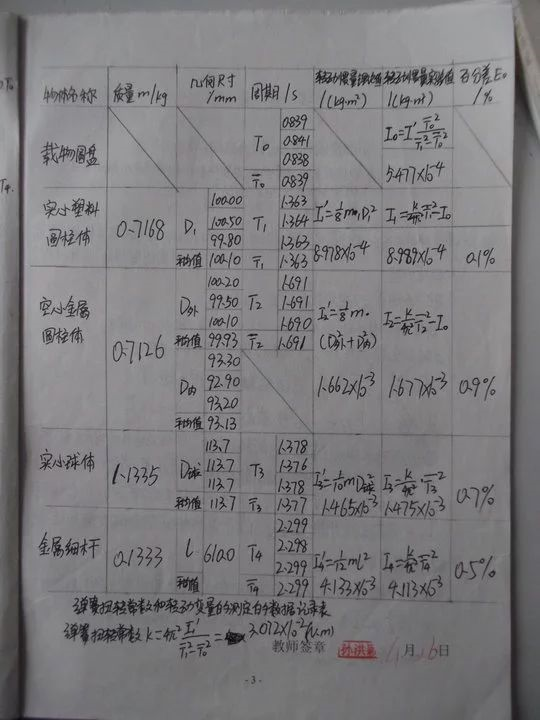 物体名称 质量m/kg 几何尺寸/mm 周期/s 转动惯量理论值/(kg·m²) 转动惯量实验值/(kg·m²) 百分差E₀/%
载物圆盘 T₀ 0.839 0.841 0.838 I₀=I₁'T̄₀²/(T̄₁²-T̄₀²)
T̄₀ 0.839 5.477×10⁻⁴
实心塑料圆柱体 0.7168 D₁ 100.00 100.50 99.80 T₁ 1.363 1.364 1.363 I₁'=1/8 m₁D₁² I₁=K/4π² T̄₁²-I₀
平均值 100.10 T̄₁ 1.363 8.978×10⁻⁴ 8.989×10⁻⁴ 0.1%
空心金属圆柱体 0.7126 D外 100.20 99.50 100.10 T₂ 1.691 1.691 1.690 I₂'=1/8 m· I₂=K/4π² T̄₂²-I₀
平均值 99.93 T̄₂ 1.691 (D外²+D内²)
D内 93.30 92.90 93.20 1.662×10⁻³ 1.677×10⁻³ 0.9%
平均值 93.13
实心球体 1.1335 D球 113.7 113.7 113.7 T₃ 1.378 1.376 1.378 I₃'=1/10 mD球² I₃=K/4π² T̄₃²
平均值 113.7 T̄₃ 1.377 1.465×10⁻³ 1.475×10⁻³ 0.7%
金属细杆 0.1333 l 610.0 T₄ 2.299 2.298 2.299 I₄'=1/12 ml² I₄=K/4π² T̄₄²
平均值 T̄₄ 2.299 4.133×10⁻³ 4.113×10⁻³ 0.5%
弹簧扭转常数和转动惯量的测定的数据记录表
弹簧扭转常数K=4π² I₁'/(T̄₁²-T̄₀²)= 3.012×10⁻²(N.m)
教师签章 月16日
- 3 -